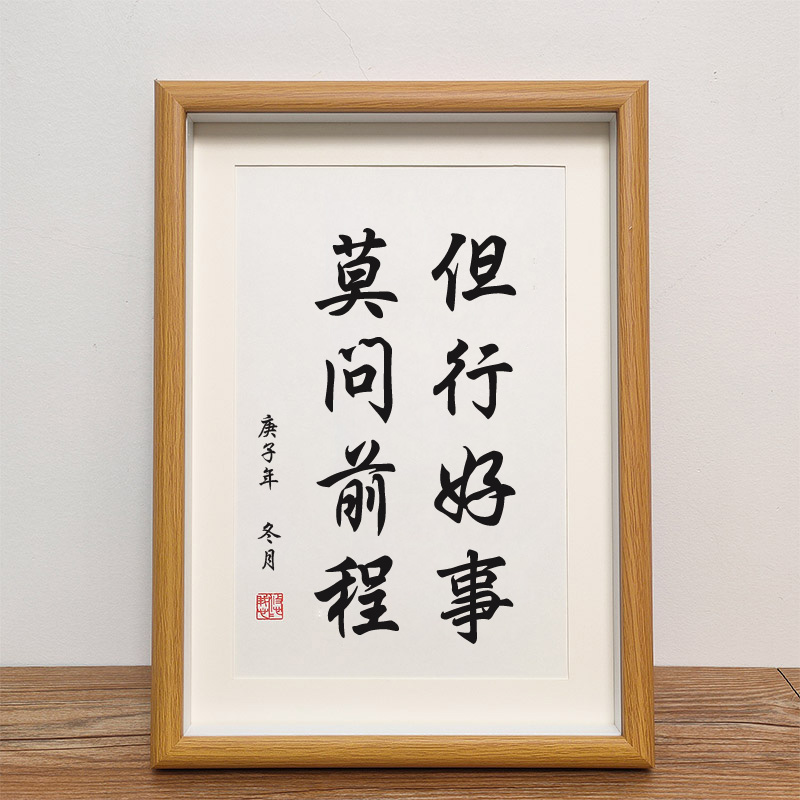 但行好事
莫问前程
庚子年 冬月